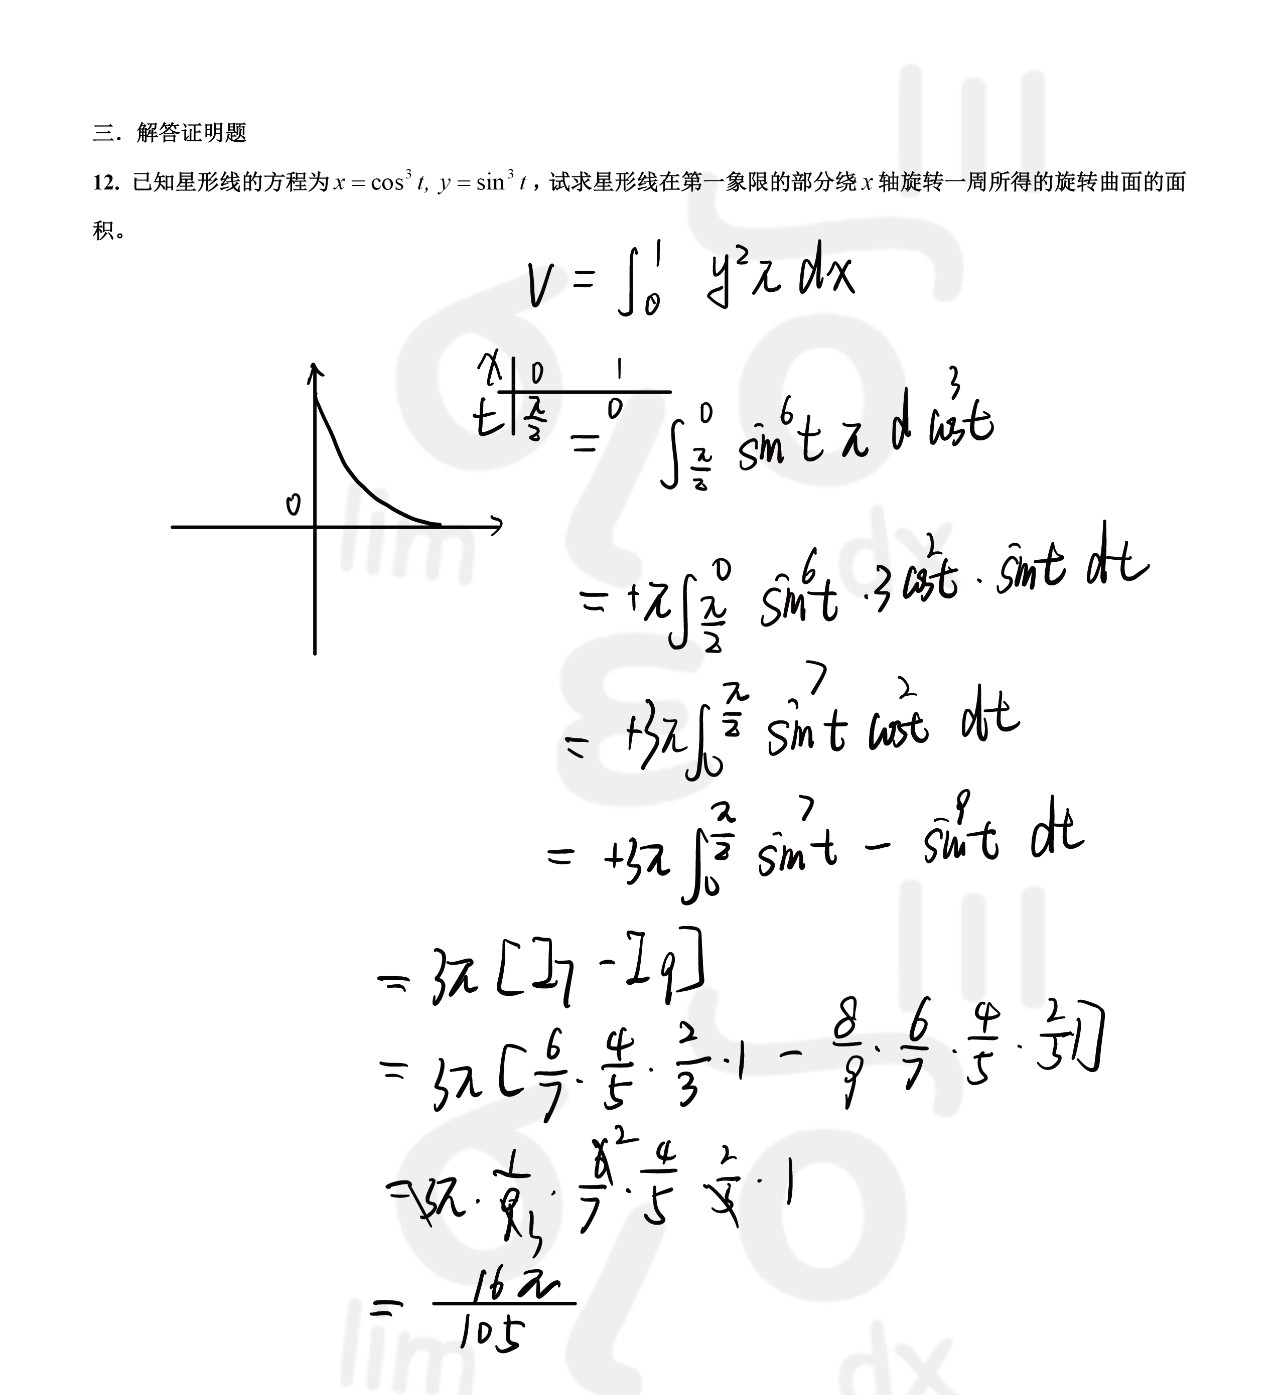 三．解答证明题
12. 已知星形线的方程为 x = cos³ t, y = sin³ t，试求星形线在第一象限的部分绕 x 轴旋转一周所得的旋转曲面的面
积。
V = ∫₀¹ y²π dx
x | 0 1
t | π/2 0
0
= ∫_{π/2}^{0} sin⁶t π d cos³t
= +π∫_{π/2}^{0} sin⁶t · 3cos²t · sint dt
= +3π∫₀^{π/2} sin⁷t cos²t dt
= +3π∫₀^{π/2} sin⁷t − sin⁹t dt
= 3π [I₇ − I₉]
= 3π [6/7 · 4/5 · 2/3 · 1 − 8/9 · 6/7 · 4/5 · 2/3 · 1]
= 3π · 1/9 3 · 6/7 2 · 4/5 2/3 · 1
= 16π/105
lim
dx
lim
dx